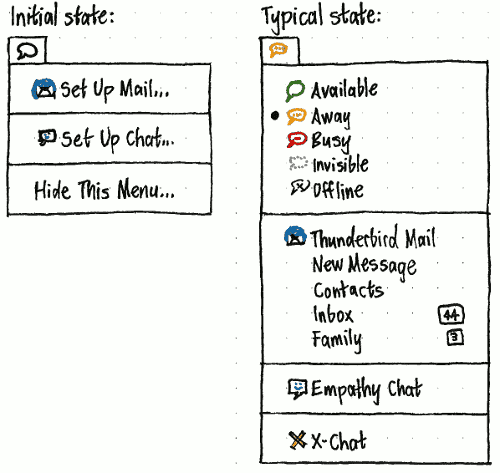 Initial state:
Set Up Mail...
Set Up Chat...
Hide This Menu...
Typical state:
Available
Away
Busy
Invisible
Offline
Thunderbird Mail
New Message
Contacts
Inbox 44
Family 3
Empathy Chat
X-Chat